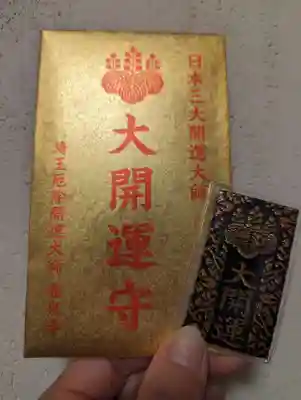 日本三大開運大師
大開運守
埼玉厄除開運大師・龍泉寺
大開運